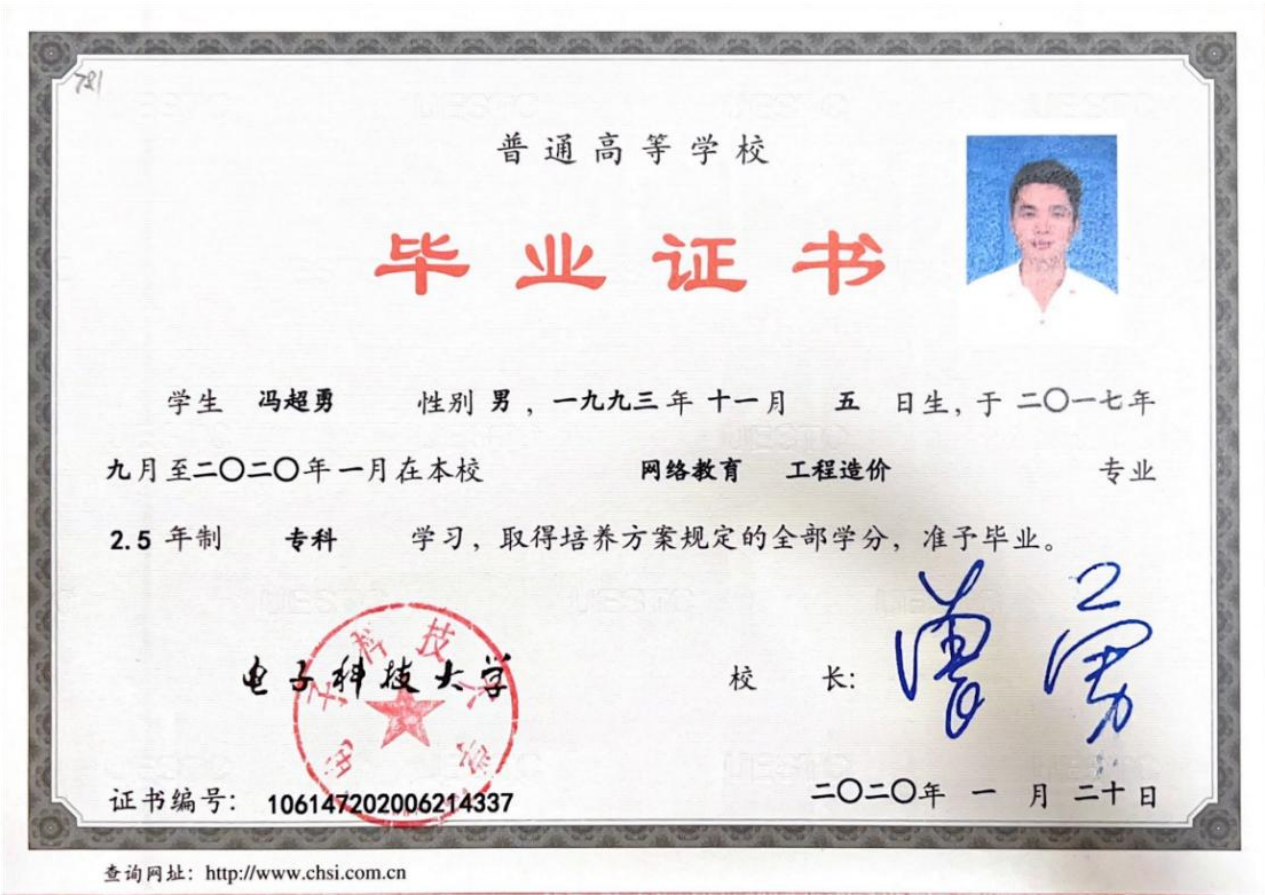 781
普通高等学校
毕业证书
学生 冯超勇 性别 男，一九九三年 十一月 五 日生，于 二〇一七年
九月至二〇二〇年 一月在本校 网络教育 工程造价 专业
2.5 年制 专科 学习，取得培养方案规定的全部学分，准予毕业。
电子科技大学
电子科技大学
校 长： 曾勇
证书编号： 106147202006214337
二〇二〇年 一 月 二十日
查询网址：http://www.chsi.com.cn